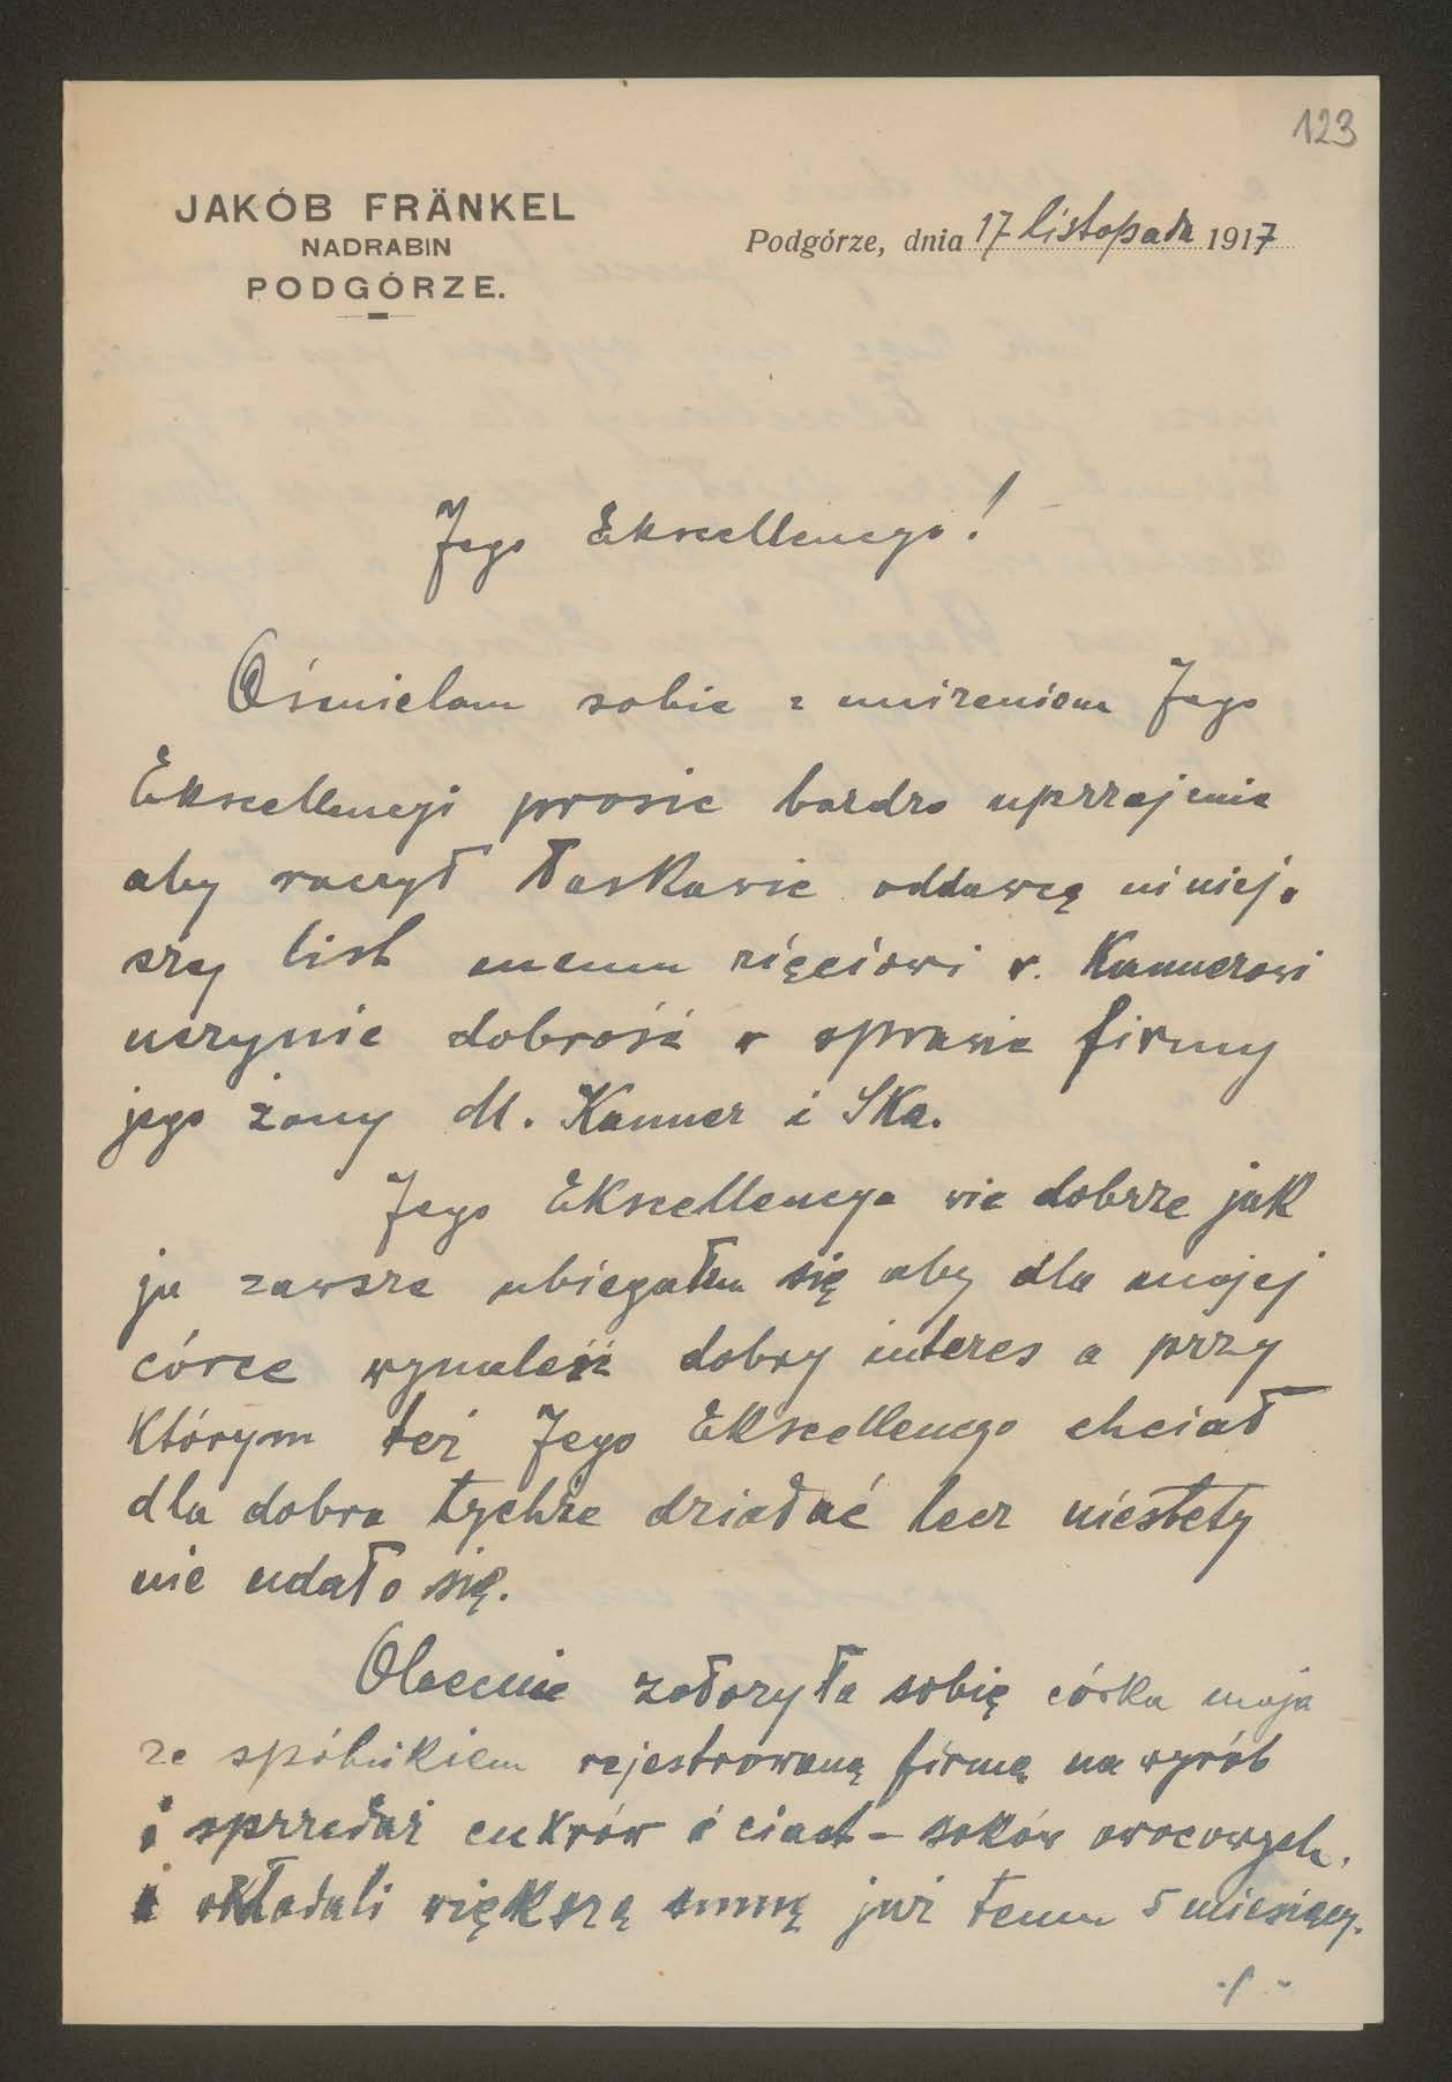 123
JAKÓB FRÄNKEL
NADRABIN
PODGÓRZE.
Podgórze, dnia 17 listopada 1917
Jego Ekscellencyo!
Ośmielam sobie z uniżeniem Jego
Ekscellencyi prosić bardzo uprzejmie
aby raczył łaskawie oddawcą niniej-
szy list memu zięciowi r. Kannerowi
uczynić dobrość w sprawie firmy
jego żony M. Kanner i Ska.
Jego Ekscellencya wie dobrze jak
ja zawsze ubiegałem się aby dla mojej
córce wynaleść dobry interes a przy
którym też Jego Ekscellencyo chciał
dla dobra tychże działać lecz niestety
nie udało się.
Obecnie założyła sobię córka moja
ze spólnikiem rejestrowaną firmę na wyrób
i sprzedaż cukrów i ciast - soków owocowych,
i wkładali większą sumę już temu 5 miesięcy.
./.